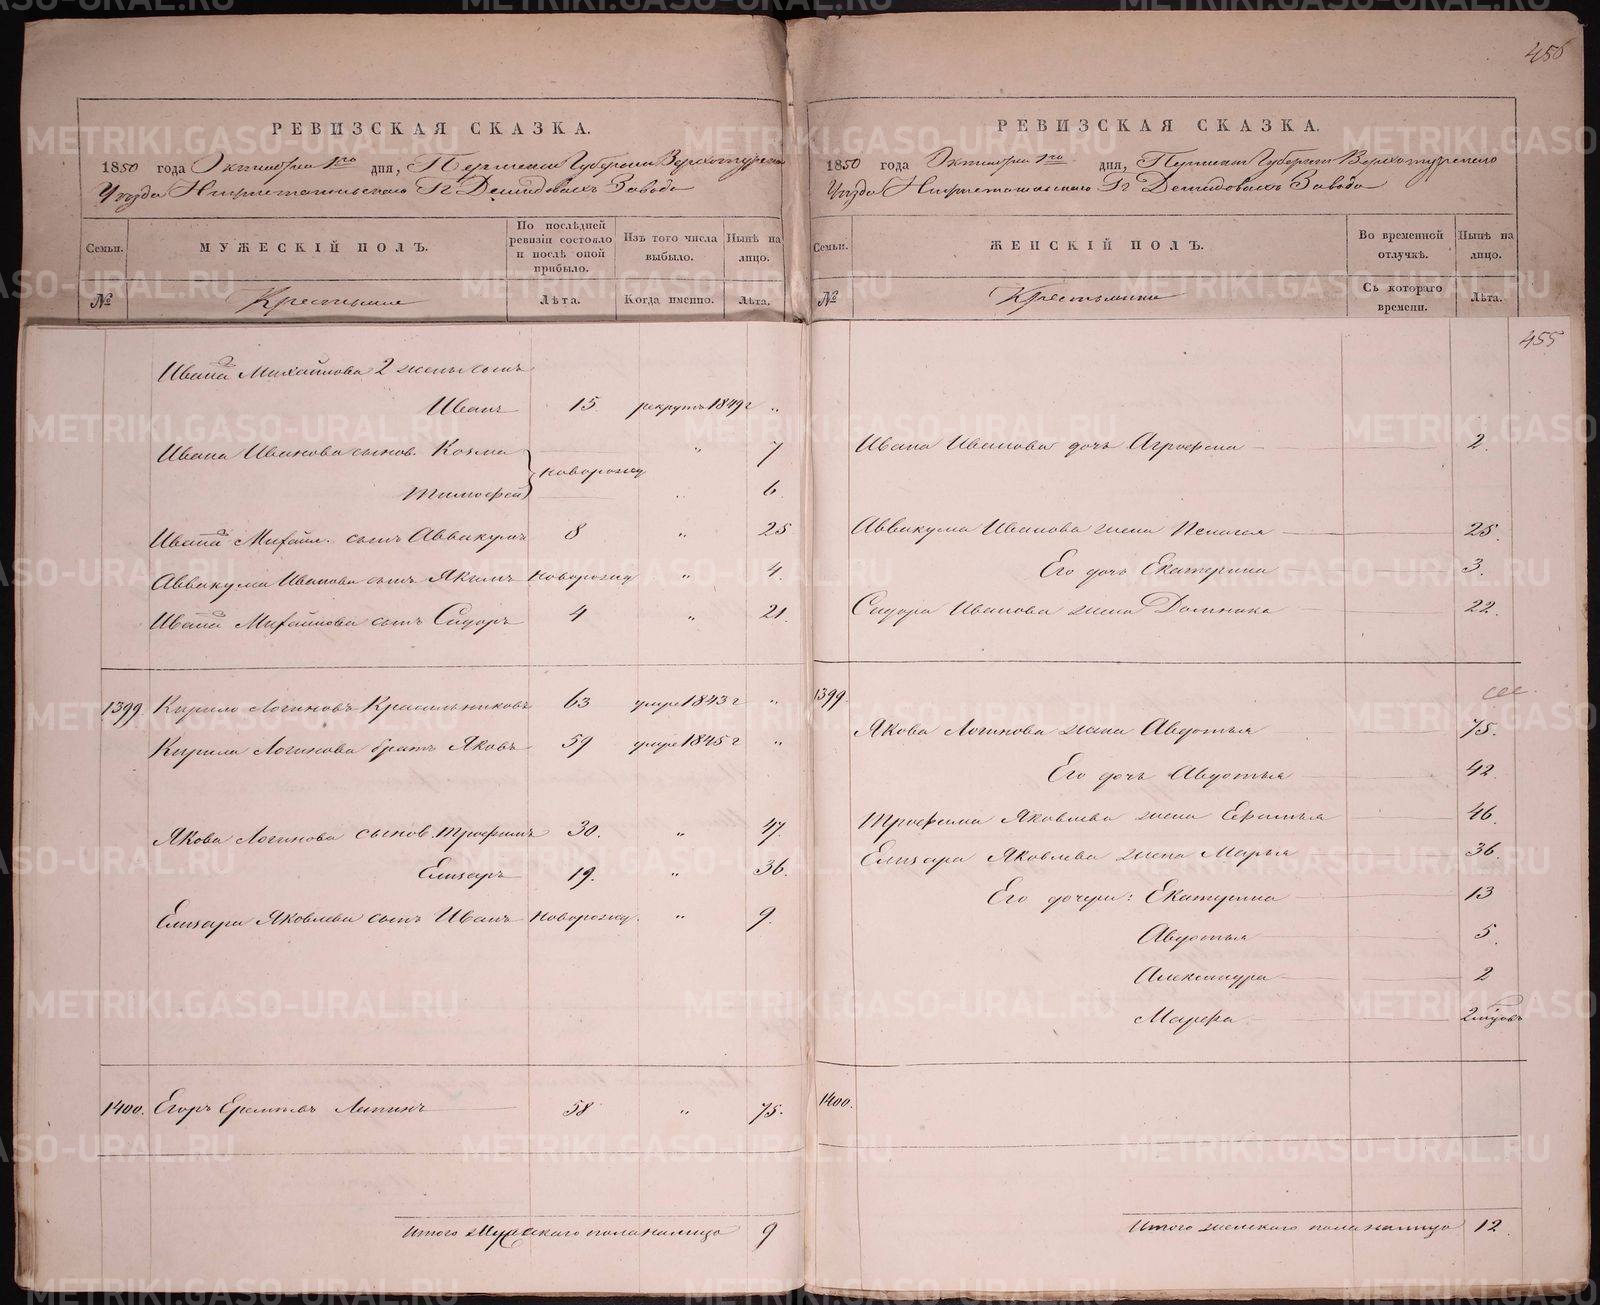 450
РЕВИЗСКАЯ СКАЗКА.
1850 года Октября 1го дня, Пермской Губернии Верхотурскаго
Уѣзда Нижнетагильскаго Гг Демидовыхъ Завода
Семьи. МУЖЕСКІЙ ПОЛЪ. По послѣдней ревизіи состояло и послѣ оной прибыло. Изъ того числа выбыло. Нынѣ на лицо.
№ Крестьяне Лѣта. Когда именно. Лѣта.
Ивана Михайлова 2 жены сынъ
Иванъ 15 рекрутъ 1849 г "
Ивана Иванова сынов. Козма " 7
новорожд
Тимофей " 6
Ивана Михайл. сынъ Аввакумъ 8 " 25
Аввакума Иванова сынъ Якимъ новорожд " 4.
Ивана Михайлова сынъ Сидоръ 4 " 21.
1399. Кирило Логиновъ Красильниковъ 63 умре 1843 г "
Кирила Логинова братъ Яковъ 59 умре 1845 г "
Якова Логинова сынов. Трофимъ 30. " 47.
Елизаръ 19. " 36.
Елизара Яковлева сынъ Иванъ новорожд. " 9.
1400. Егоръ Ереминъ Ляпинъ 58 " 75.
Итого мужескаго пола налицо 9
РЕВИЗСКАЯ СКАЗКА.
1850 года Октября 1го дня, Пермской Губерніи Верхотурскаго
Уѣзда Нижнетагильскаго Гг Демидовыхъ Завода
Семьи. ЖЕНСКІЙ ПОЛЪ. Во временной отлучкѣ. Нынѣ на лицо.
№ Крестьянки Съ котораго времени. Лѣта.
455
Ивана Иванова дочь Агрофена 2.
Аввакума Иванова жена Пелагея 25.
Его дочь Екатерина 3.
Сидора Иванова жена Домника 22.
1399.
Якова Логинова жена Авдотья 75.
Его дочь Авдотья 42.
Трофима Яковлева жена 46.
Елизара Яковлева жена Марья 36.
Его дочери: Екатерина 13
Авдотья 5.
Александра 2
Марфа 2
1400.
Итого женскаго пола налицо 12.
METRIKI.GASO-URAL.RU